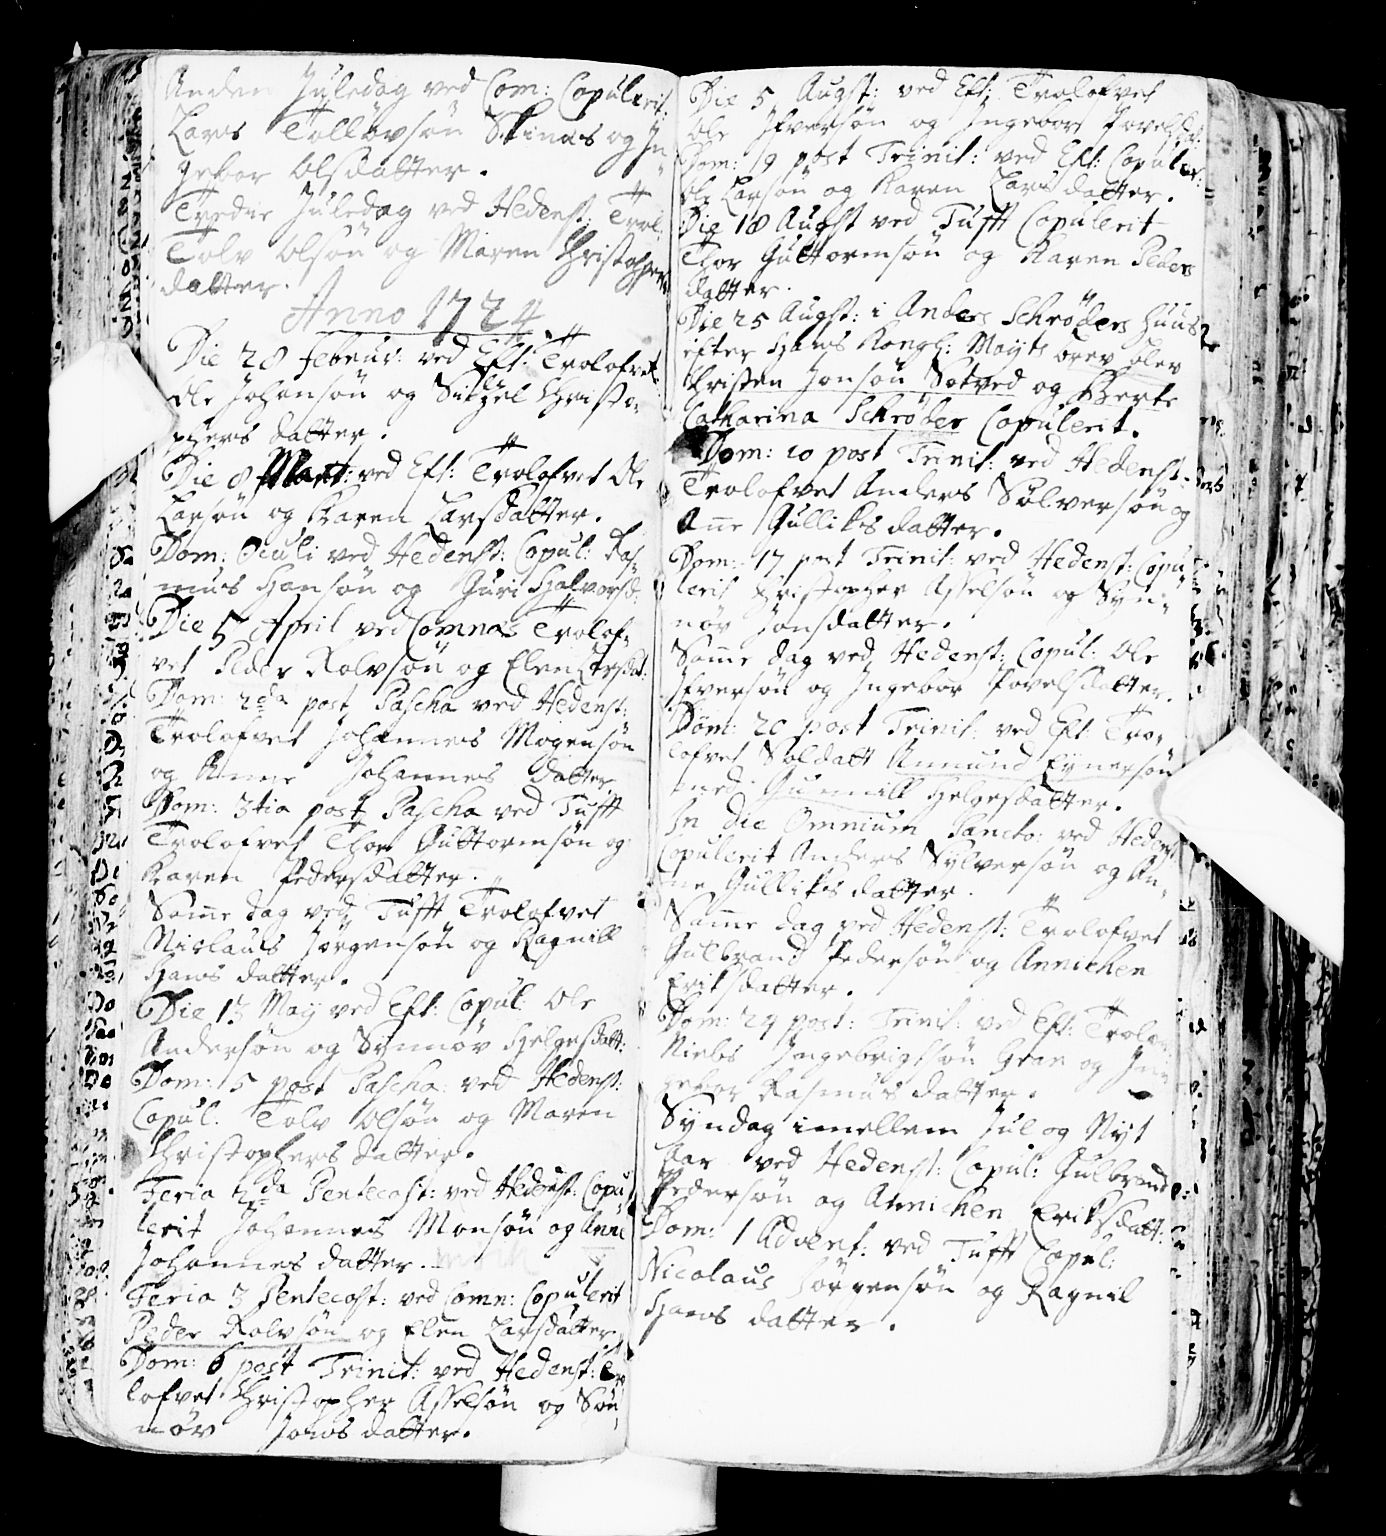 Anden Juledag ved Com: Copulerit
Lars Tollövsön Skinæs og In-
gebor Olsdatter.
Tredie Juledag ved Hedenst: Trol:
Tolv Olsön og Maren Christophers
datter.
Anno 1724.
Die 28 Februr: ved Eft: Trolofvet
Ole Johansön og Sitzel Christo-
phers datter.
Die 8 Mart: ved Eft: Trolofvet Ole
Larsön og Karen Larsdatter.
Dom: Oculi ved Hedenst: Copul: Ras-
mus Hansön og Guri Halvorsd:
Die 5 April ved Comnæs Trolof-
vet Peder Rolvsön og Elen Larsdat:
Dom: 2da post Pascha ved Hedenst:
Trolofvet Johannes Mogensön
og Anne Johannes datter.
Dom: 3tia post Pascha ved Tufft
Trolofvet Thor Guttormsön og
Karen Pedersdatter.
Same dag ved Tufft Trolofvet
Niclaus Jörgensön og Ragnill
Hans datter.
Die 13 May ved Eft: Copul: Ole
Andersön og Synnöv Helgesdatt:
Dom: 5 post Pascha: ved Hedenst:
Copul: Tolv Olsön og Maren
Christophers datter.
Feria 2da Pentecost: ved Hedenst: Copu
lerit Johannes Monsön og Anne
Johannes datter.
Feria 3 Pentecost: ved Comn: Copulerit
Peder Rolvsön og Elen Larsdatter,
Dom: 6 post Trinit: ved Hedenst: Tro
lofvet Christopher Asselsön og Sön-
növ Jons datter.
Die 5 Augst: ved Eft: Trolofvet
Ole Ifversön og Ingebor Povelsd:
Dom: 9 post Trinit: ved Eft: Copuler:
Ole Larsön og Karen Lars datter.
Die 18 Augst ved Tufft Copulerit
Thor Guttormsön og Karen Peders
datter.
Die 25 Augst: i Anders Schröders Huus
efter Hans Kongl: Mayts brev blev
Christen Jonsön Sötved og Berte
Catharina Schröder Copulerit.
Dom: 10 post Trinit: ved Hedenst:
Trolofvet Anders Sölversön og
Ane Gulliks datter.
Dom: 17 post Trinit: ved Hedenst: Copu
lerit Christopher Asselsön og Syn-
növ Jonsdatter.
Same dag ved Hedenst: Copul: Ole
Ifversön og Ingebor Povelsdatter.
Dom: 20 post Trinit: ved Eft: Tro-
lofvet Soldatt Amund Eynersön
med Gunnill Helgesdatter.
In Die Omnium Sancto: ved Hedenst
Copulerit Anders Sylversön og An-
ne Gulliks datter.
Same dag ved Hedenst: Trolofvet
Gulbrand Pedersön og Annichen
Eriksdatter.
Dom: 24 post: Trinit: ved Eft: Trolov:
Niels Ingebrigtsön Gran og In-
gebor Rasmus datter.
Syndag imellem Jul og Nyt
Aar ved Hedenst: Copul: Gulbrand
Pedersön og Annichen Eriksdatt:
Dom: 1 Advent: ved Tufft Copul:
Nicolaus Jörgensön og Ragnil
Hans datter.